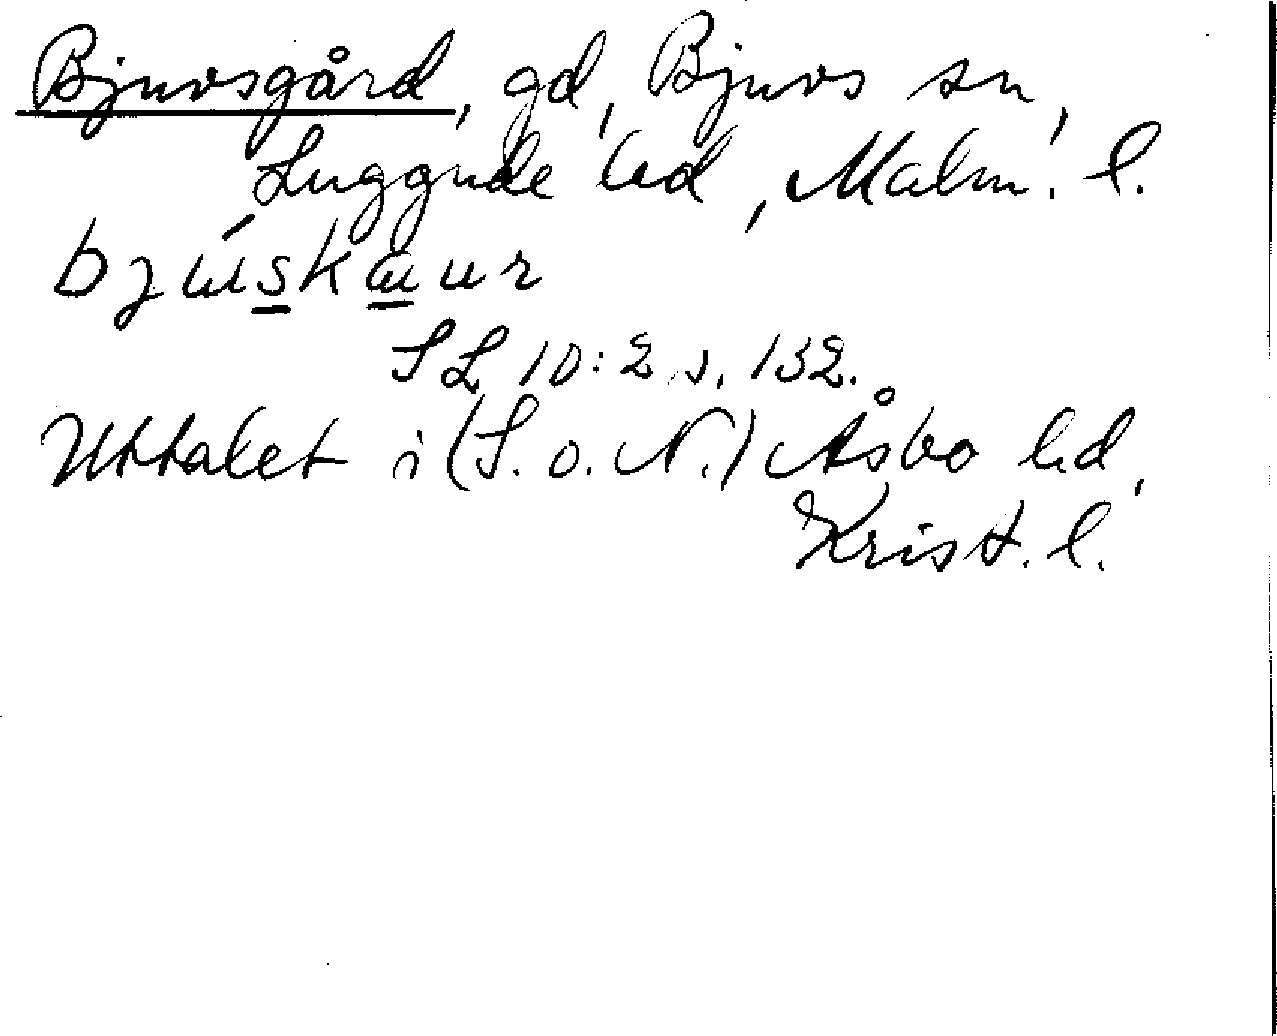 Bjuvsgård, gd, Bjuvs sn,
Luggude hd, Malm. l.
SL 10:2 s. 132.
Uttalet i (S. o. N.) Åsbo hd,
Krist. l.